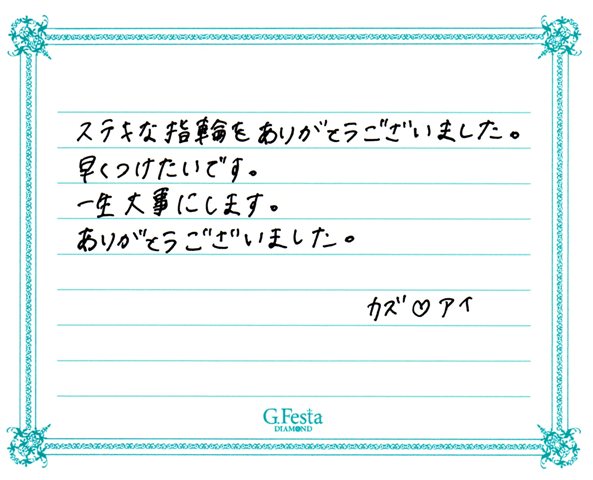 ステキな指輪をありがとうございました。
早くつけたいです。
一生大事にします。
ありがとうございました。
カズ♡アイ
G.Festa
DIAMOND